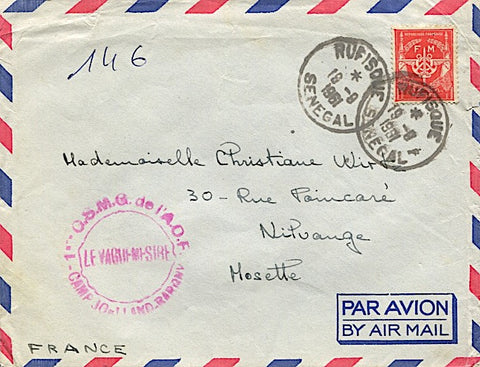 146
RUFISQUE
19-9
1961
SENEGAL
REPUBLIQUE FRANÇAISE
F M
RUFISQUE
19-9
1961
SENEGAL
Mademoiselle Christiane
30 - Rue Poincaré
Nilvange
Mosette
C.S.M.G. de l'A.O.F
LE VAGUEMESTRE
CAMP
PAR AVION
BY AIR MAIL
FRANCE